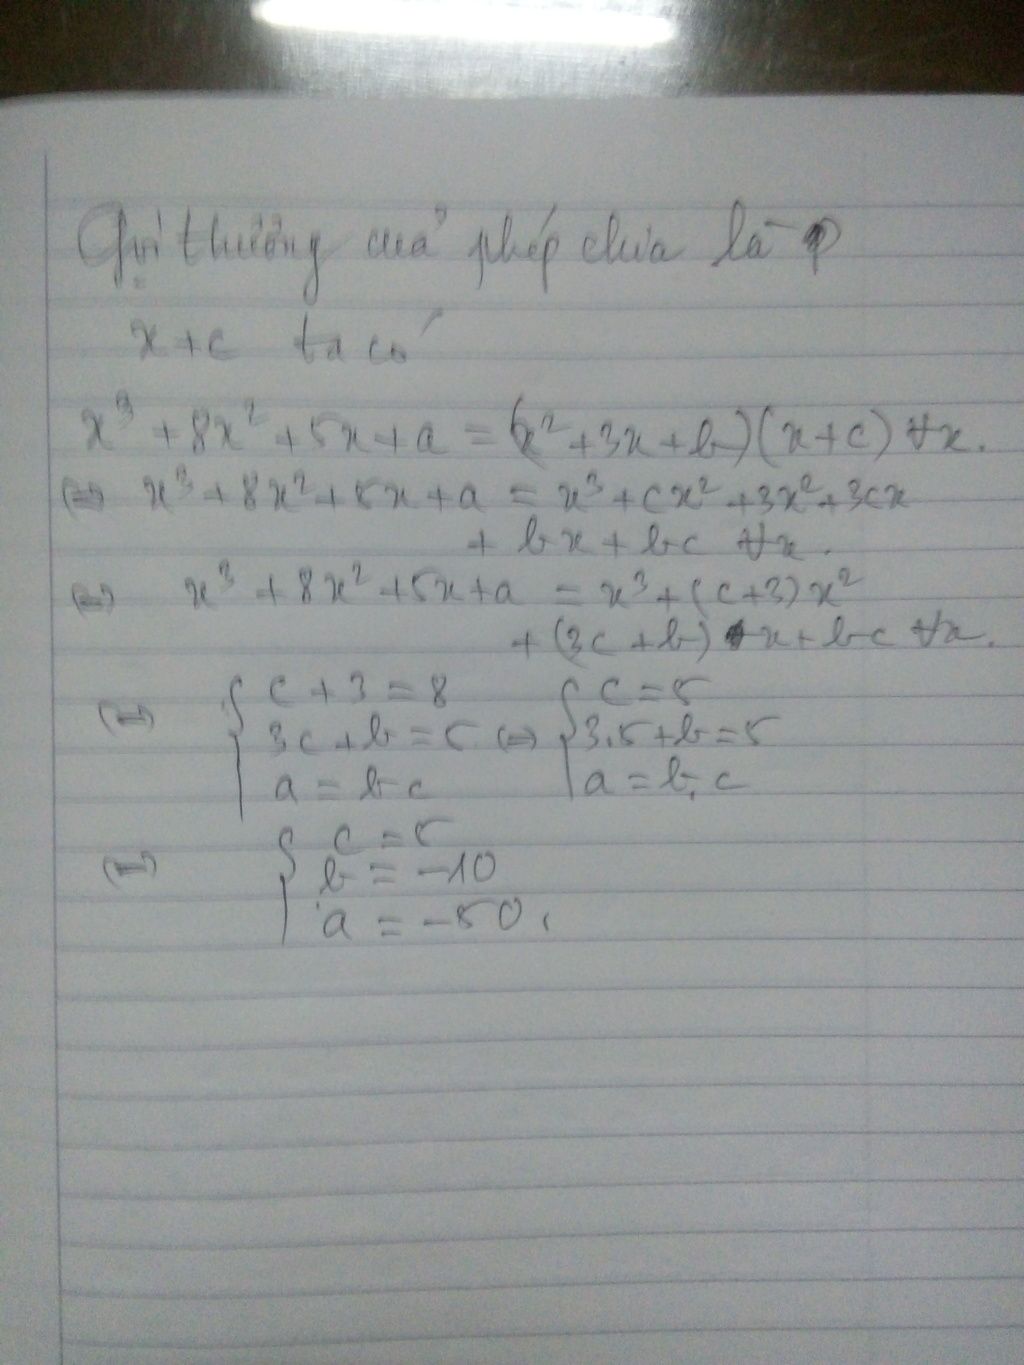 Gọi thương của phép chia là
x+c ta có
x³ + 8x² + 5x + a = (x² + 3x + b)(x + c) ∀x.
(=) x³ + 8x² + 5x + a = x³ + cx² + 3x² + 3cx
+ bx + bc ∀x.
(=) x³ + 8x² + 5x + a = x³ + (c+3)x²
+ (3c + b) x + bc ∀x.
(=) { c + 3 = 8 { c = 5
3c + b = 5 (=) 3.5 + b = 5
a = bc a = b.c
{ c = 5
(=) b = -10
a = -50.